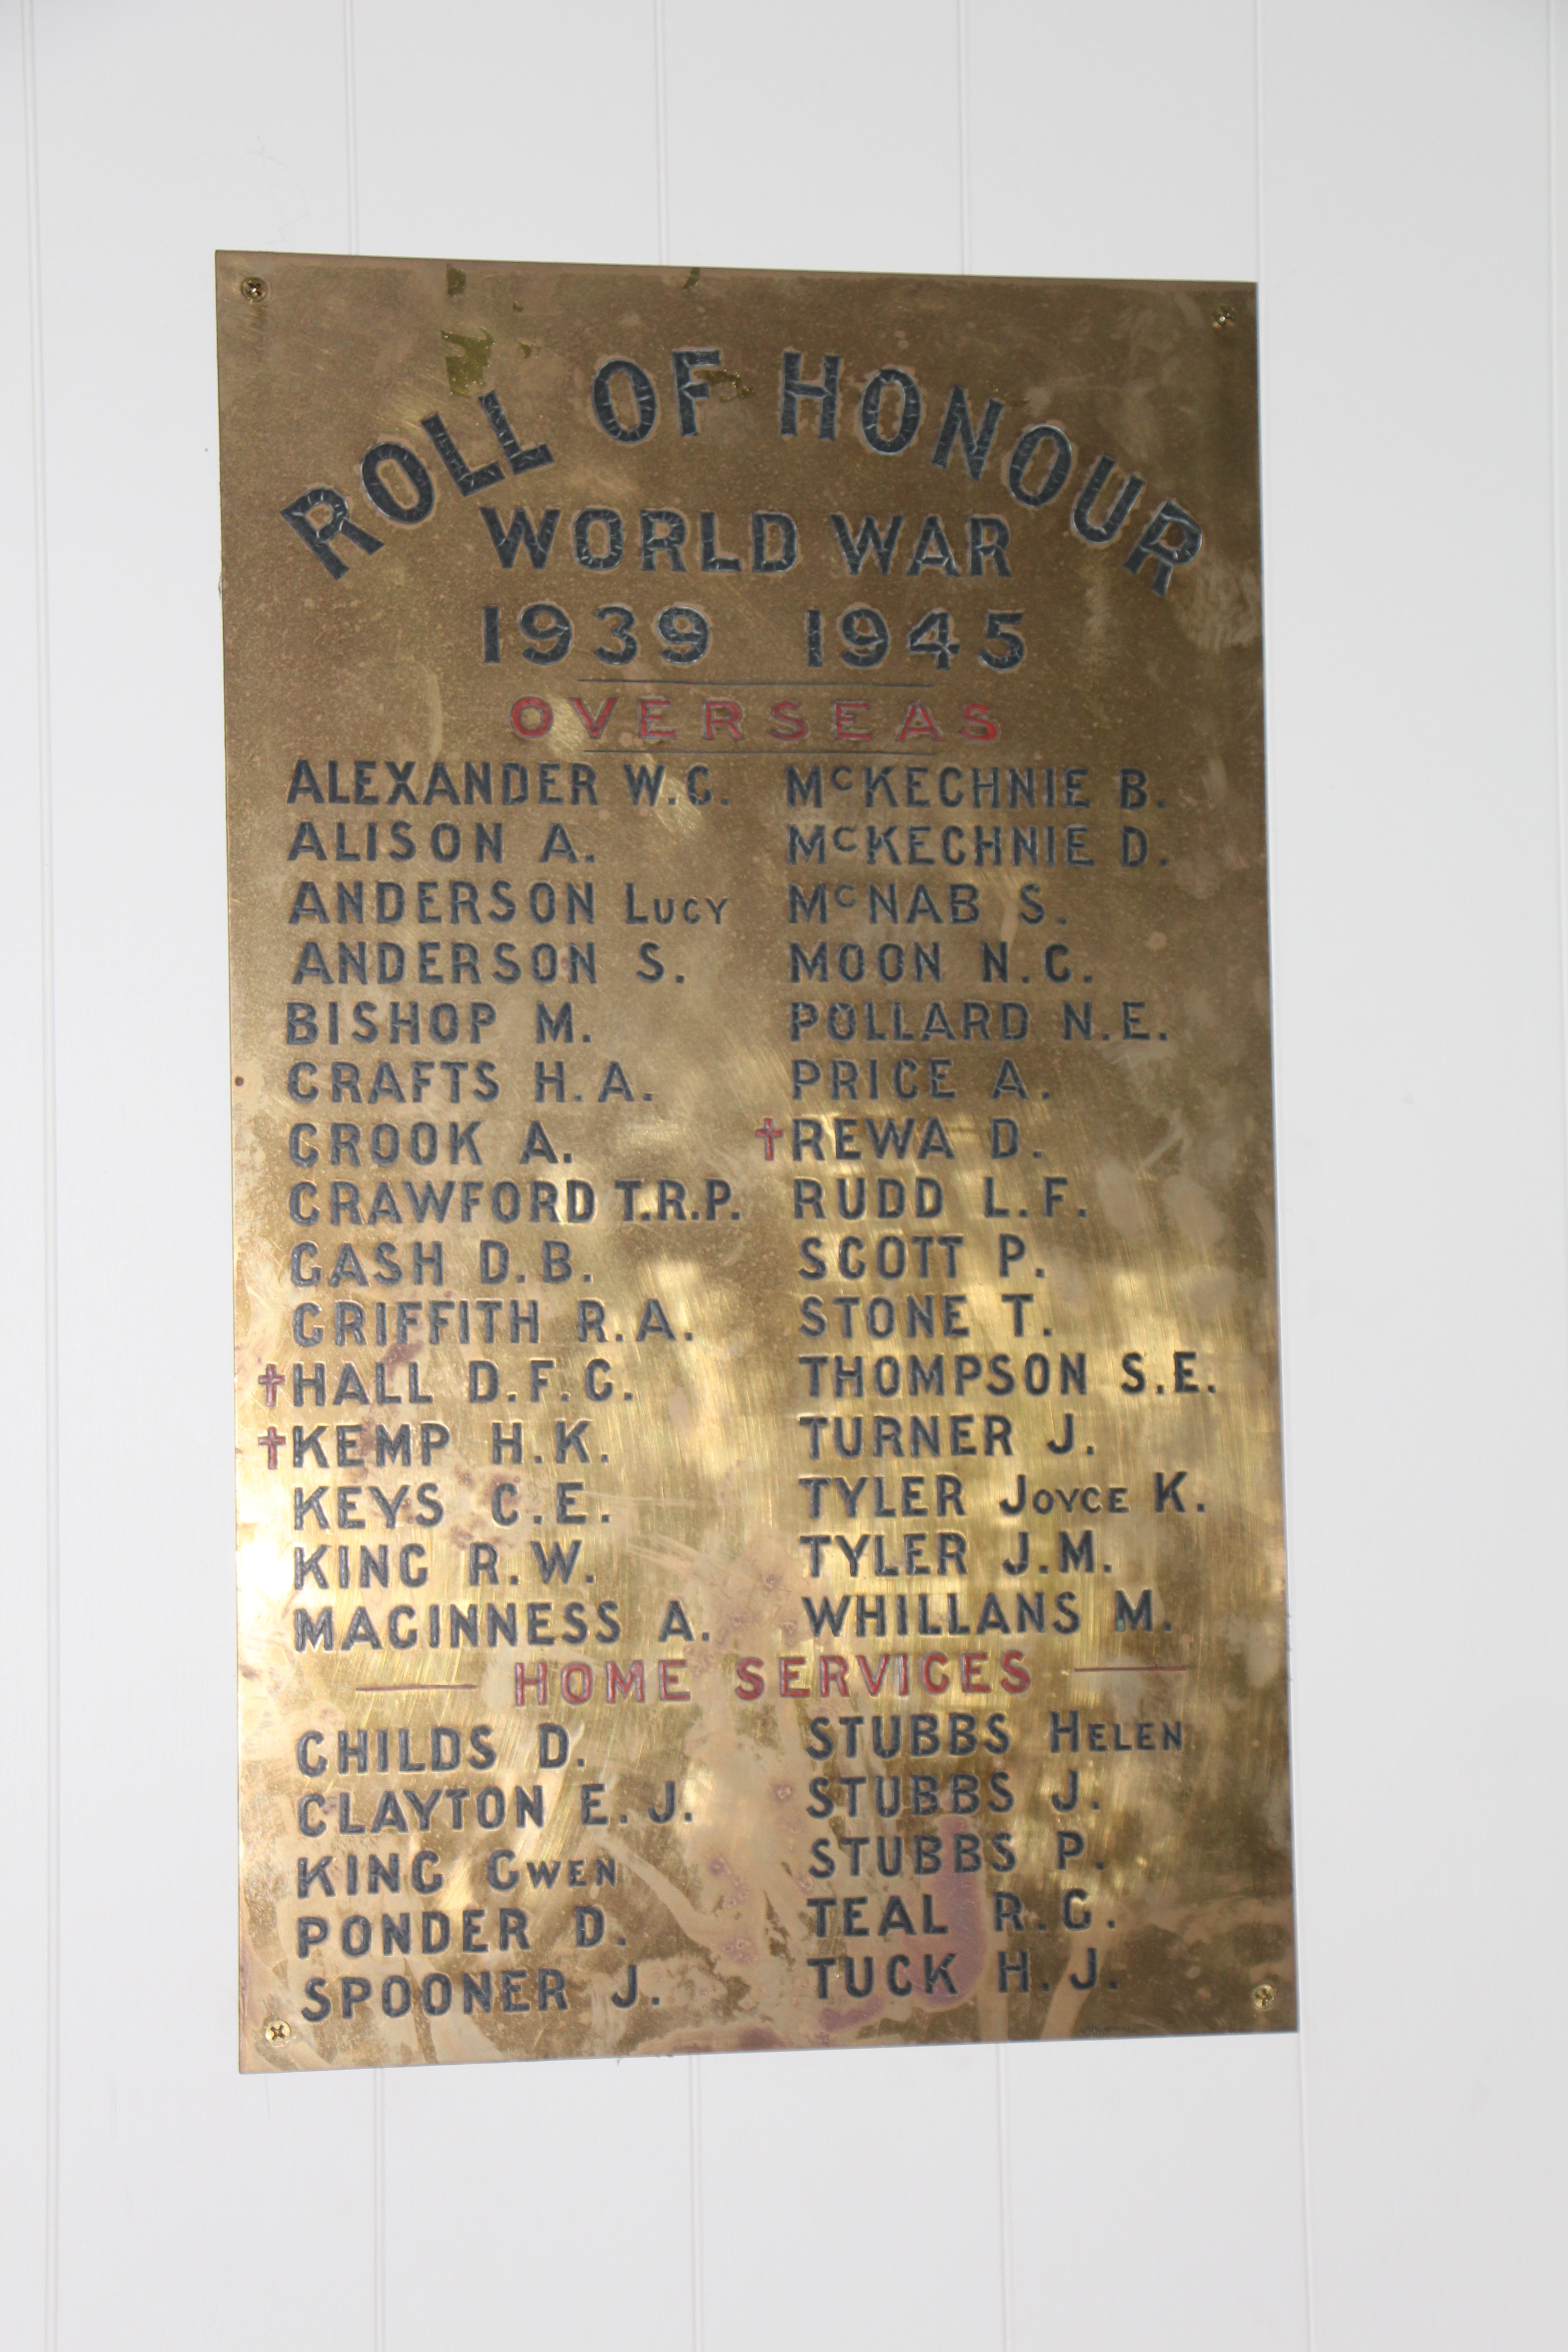 ROLL OF HONOUR
WORLD WAR
1939 1945
OVERSEAS
ALEXANDER W.G.
ALISON A.
ANDERSON LUCY
ANDERSON S.
BISHOP M.
CRAFTS H.A.
CROOK A.
CRAWFORD T.R.P.
GASH D.B.
GRIFFITH R.A.
†HALL D.F.G.
†KEMP H.K.
KEYS C.E.
KING R.W.
MAGINNESS A.
McKECHNIE B.
McKECHNIE D.
McNAB S.
MOON N.C.
POLLARD N.E.
PRICE A.
†REWA D.
RUDD L.F.
SCOTT P.
STONE T.
THOMPSON S.E.
TURNER J.
TYLER JOYCE K.
TYLER J.M.
WHILLANS M.
HOME SERVICES
CHILDS D.
CLAYTON E.J.
KING GWEN
PONDER D.
SPOONER J.
STUBBS HELEN
STUBBS J.
STUBBS P.
TEAL R.G.
TUCK H.J.